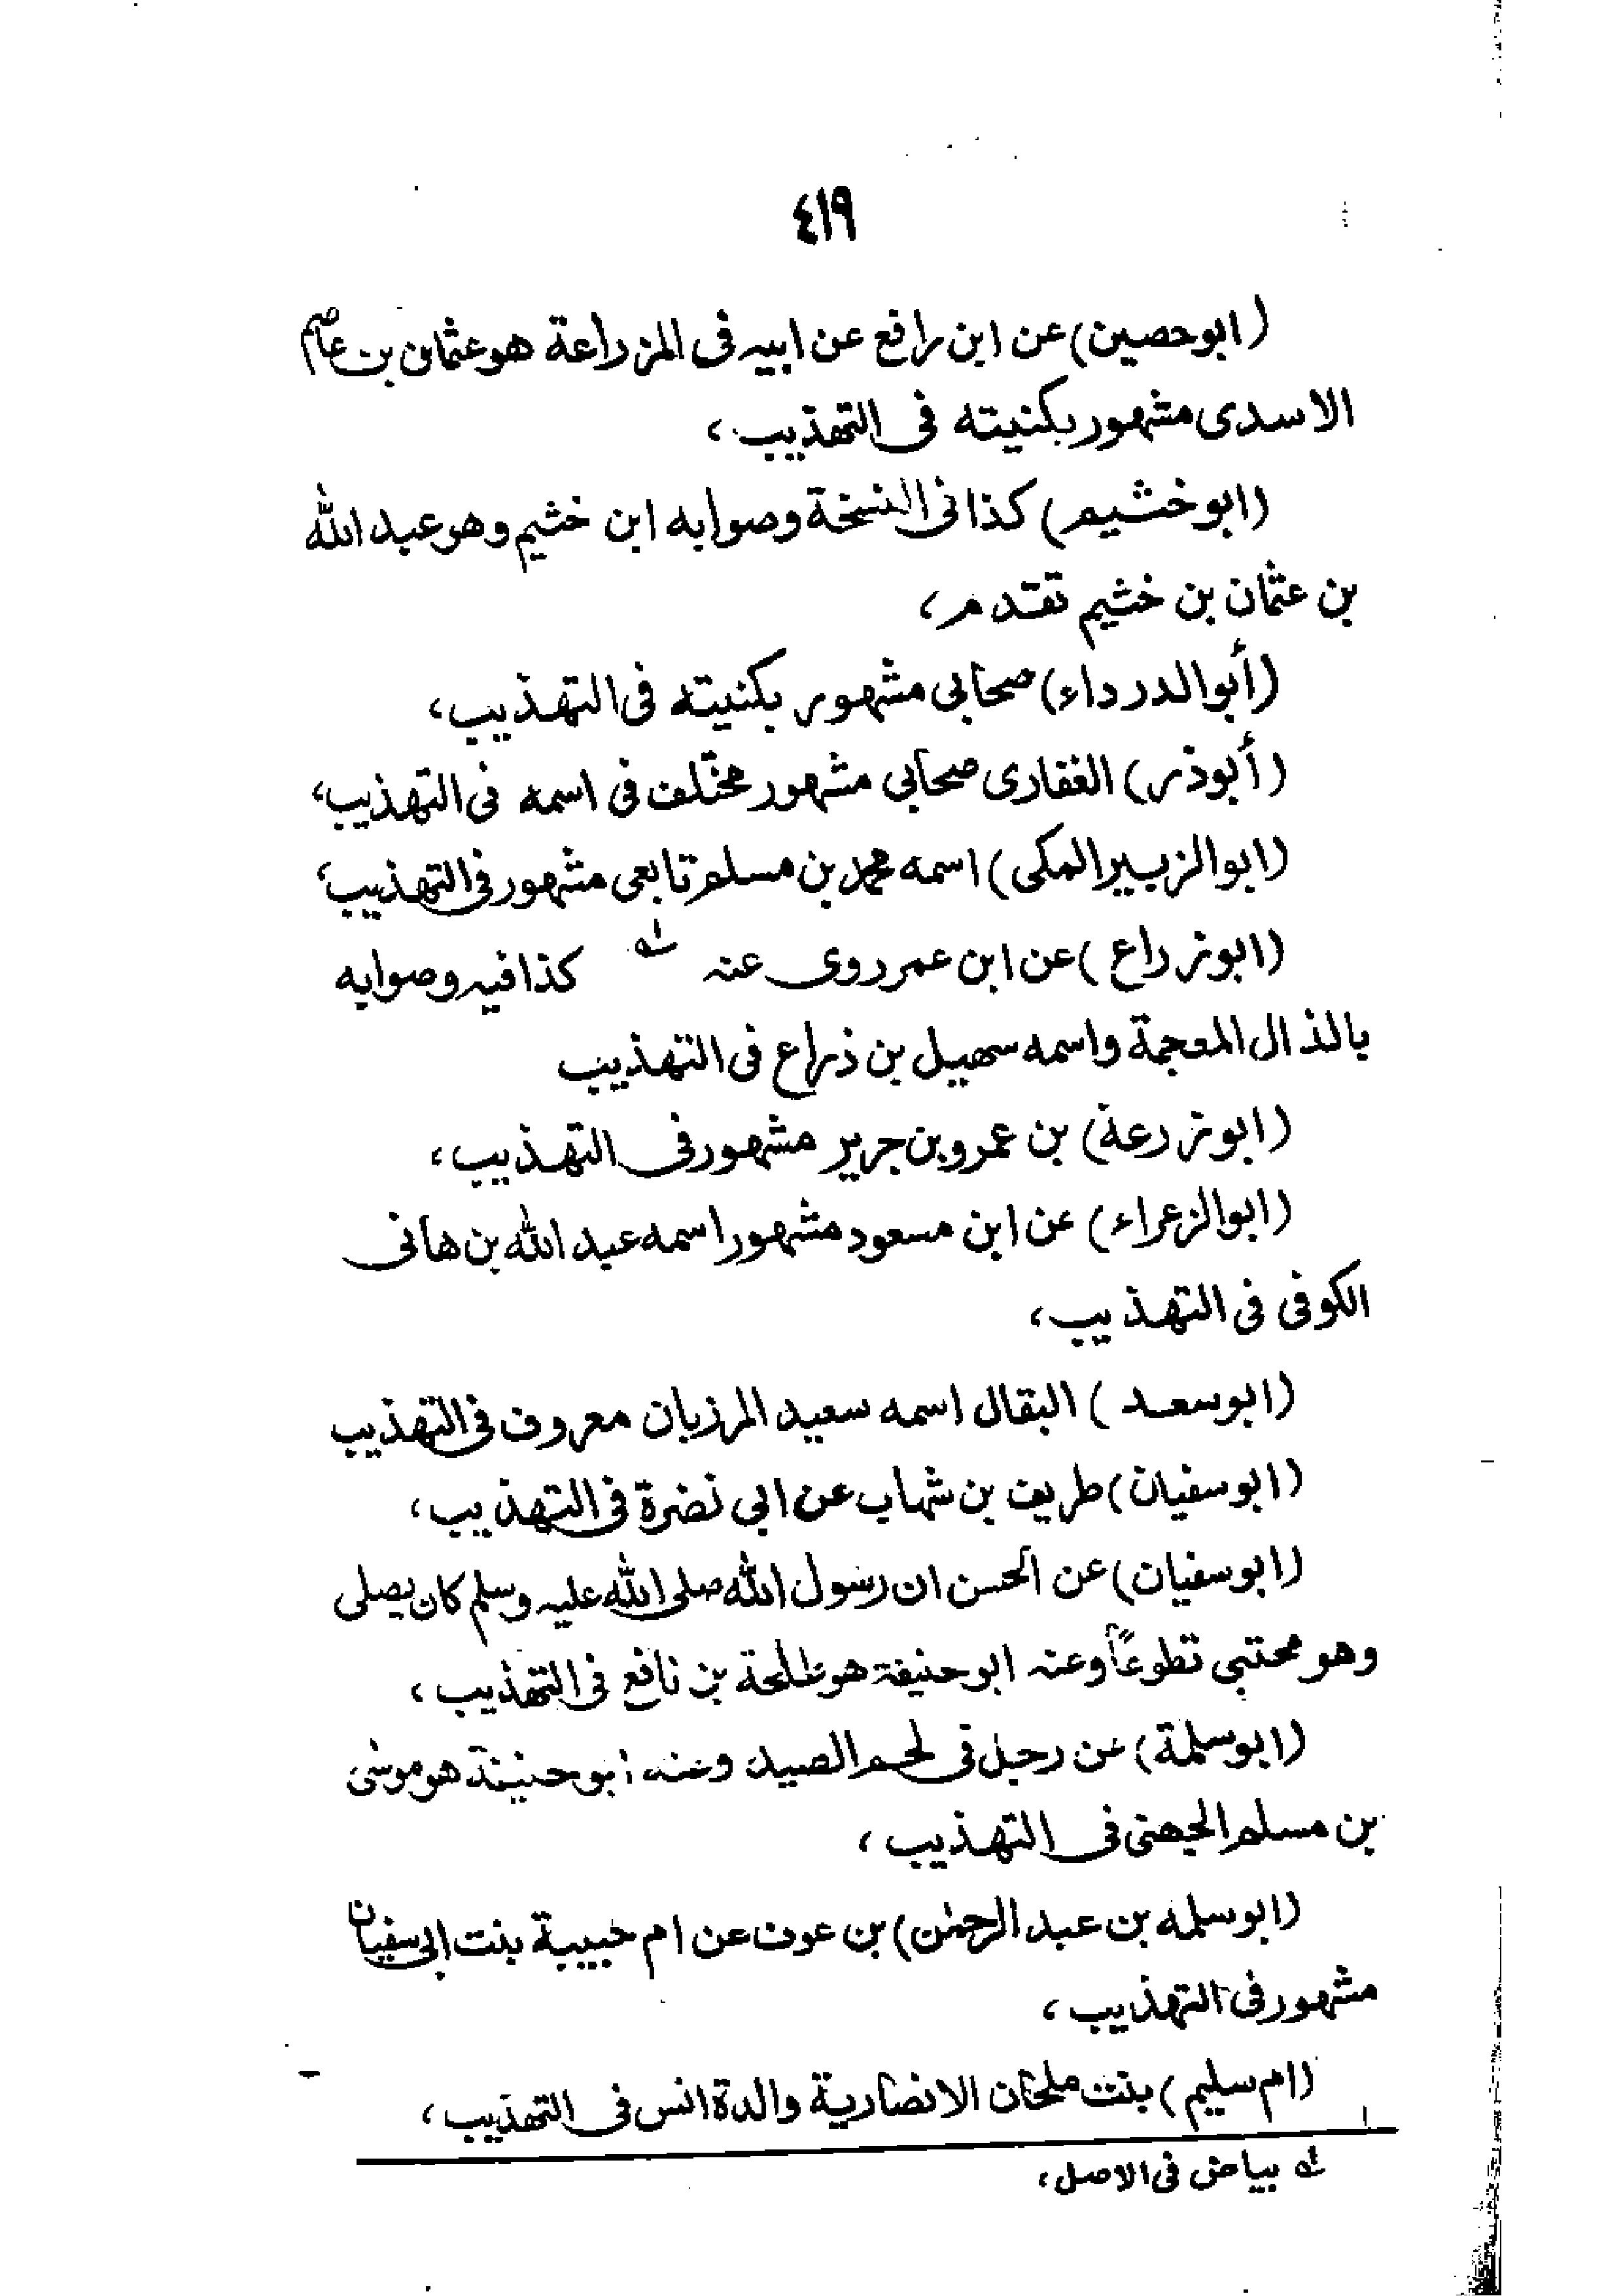 ٤١٩
(ابوحصين) عن ابن رافع عن ابيه فى المزراعة هو عثمان بن عاصم
الاسدى مشهور بكنيته فى التهذيب،
(ابو خشيم) كذا فى النسخة وصوابه ابن خثيم وهو عبد الله
بن عثمان بن خثيم تقدم،
(أبو الدرداء) صحابى مشهور بكنيته فى التهذيب،
(أبوذر) الغفارى صحابي مشهور مختلف فى اسمه فى التهذيب،
(ابو الزبير المكى) اسمه محمد بن مسلم تابعى مشهور فى التهذيب،
(ابوزراع) عن ابن عمر روى عنه له كذا فيه وصوابه
بالذال المعجمة واسمه سهيل بن ذراع فى التهذيب
(ابوزرعة) بن عمرو بن جرير مشهور فى التهذيب،
(ابو الزعراء) عن ابن مسعود مشهور اسمه عبد الله بن هانى
الكوفى فى التهذيب،
(ابو سعد) البقال اسمه سعيد المرزبان معروف فى التهذيب
(ابو سفيان) طريف بن شهاب عن ابي نضرة فى التهذيب،
(ابو سفيان) عن الحسن ان رسول الله صلى الله عليه وسلم كان يصلى
وهو محتبى تطوعاً وعنه ابو حنيفة هو طلحة بن نافع فى التهذيب،
(ابو سلمة) عن رجل فى لحم الصيد وعنه ابو حنيفة هو موسىٰ
بن مسلم الجهنى فى التهذيب،
(ابو سلمه بن عبد الرحمٰن) بن عوف عن ام حبيبة بنت ابى سفيان
مشهور فى التهذيب،
(ام سليم) بنت ملحان الانصارية والدة انس فى التهذيب،
له بياض فى الاصل،